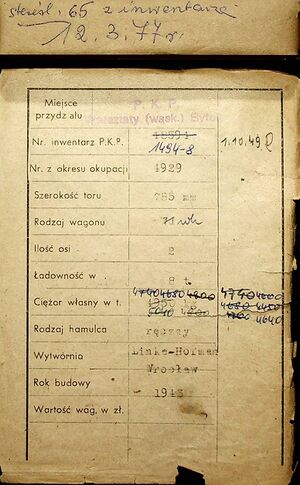 skreśl. 65 z inwentarza
12.3.77 r.
Miejsce przydziału P. K. P.
Warsztaty (wąsk.) Byto
Nr. inwentarz P.K.P. 18594 1.10.49
1494-8
Nr. z okresu okupacji 4929
Szerokość toru 785 mm
Rodzaj wagonu
Ilość osi 2
Ładowność w t
Ciężar własny w t. 4740 4680 4800 4740 4600
4680 4450
4640
Rodzaj hamulca ręczny
Wytwórnia Linke-Hofman
Wrocław
Rok budowy 1943
Wartość wag. w zł.